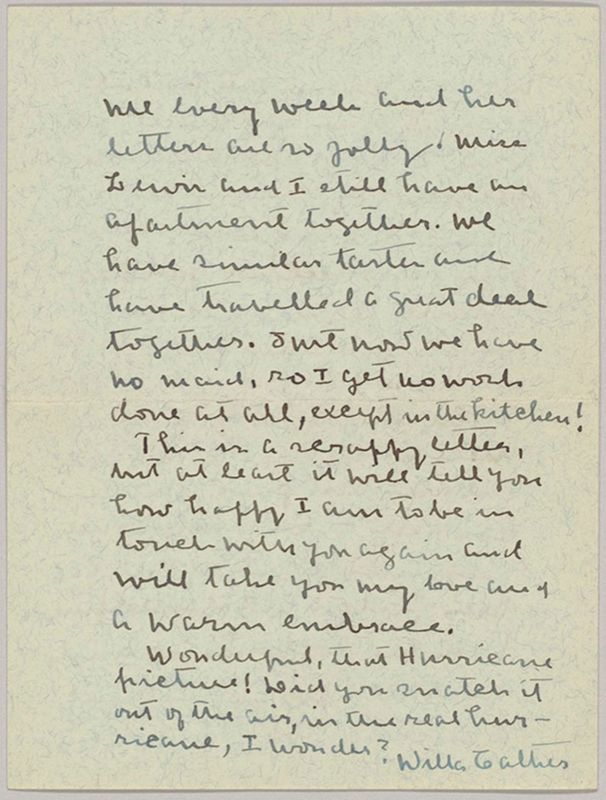 me every week and her
letters are so jolly! Miss
Lewis and I still have an
apartment together. We
have similar tastes and
have travelled a great deal
together. Just now we have
no maid, so I get no work
done at all, except in the kitchen!
This is a scrappy letter,
but at least it will tell you
how happy I am to be in
touch with you again and
will take you my love and
a warm embrace.
Wonderful, that Hurricane
picture! Did you snatch it
out of the air, in the real hur-
ricane, I wonder?
Willa Cather